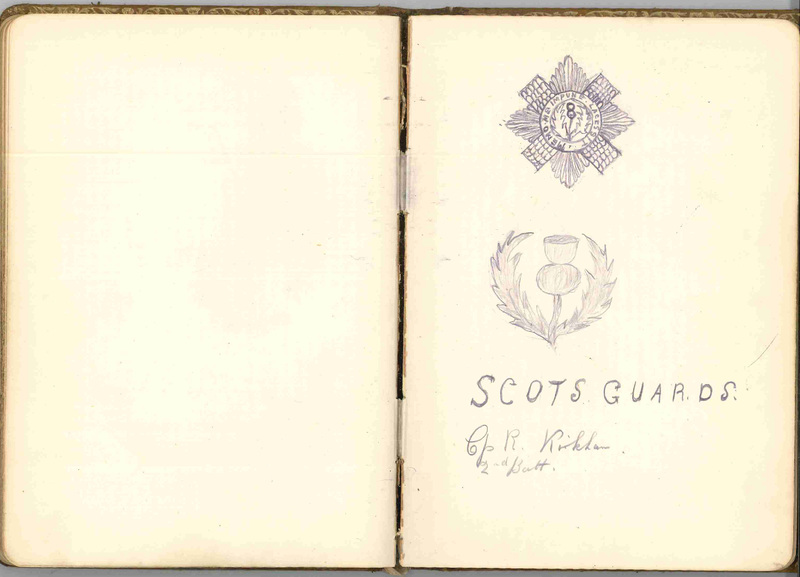 NEMO ME IMPUNE LACESSIT
SCOTS GUARDS.
Cp R. Kirkham.
2nd Batt.